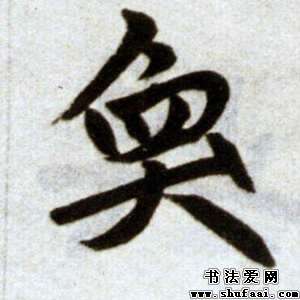 奐
书法爱网
www.shufaai.com